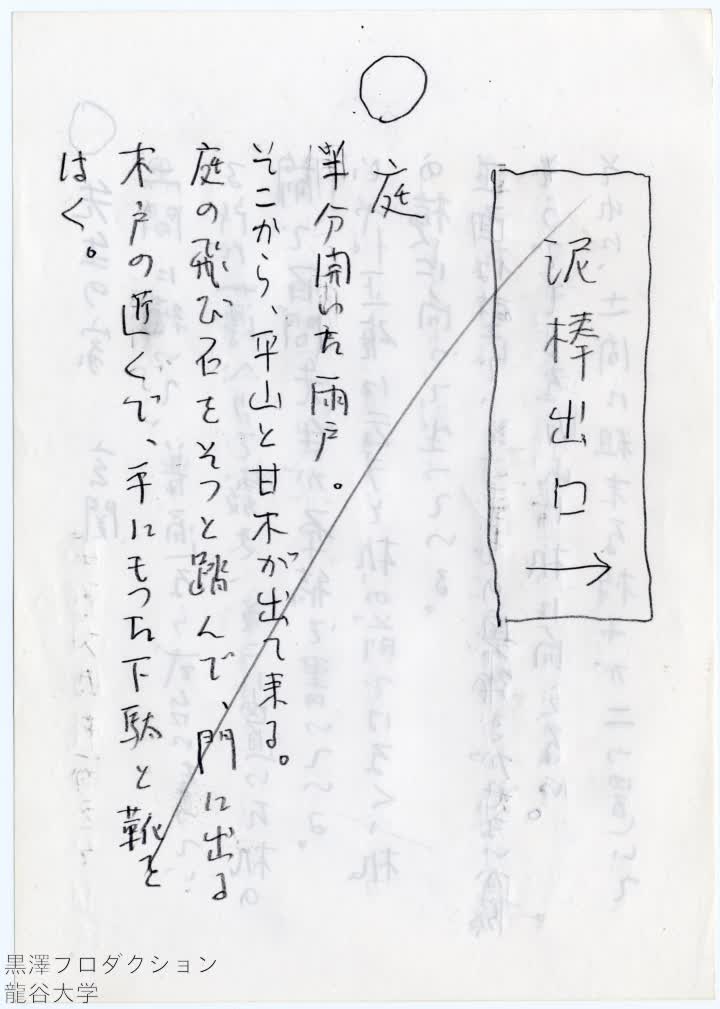 泥棒出口
→
○
庭
半分開いた雨戸。
そこから、平山と甘木が出て来る。
庭の飛び石をそっと踏んで、門に出る
木戸の近くで、手にもった下駄と靴を
はく。
黒澤プロダクション
龍谷大学